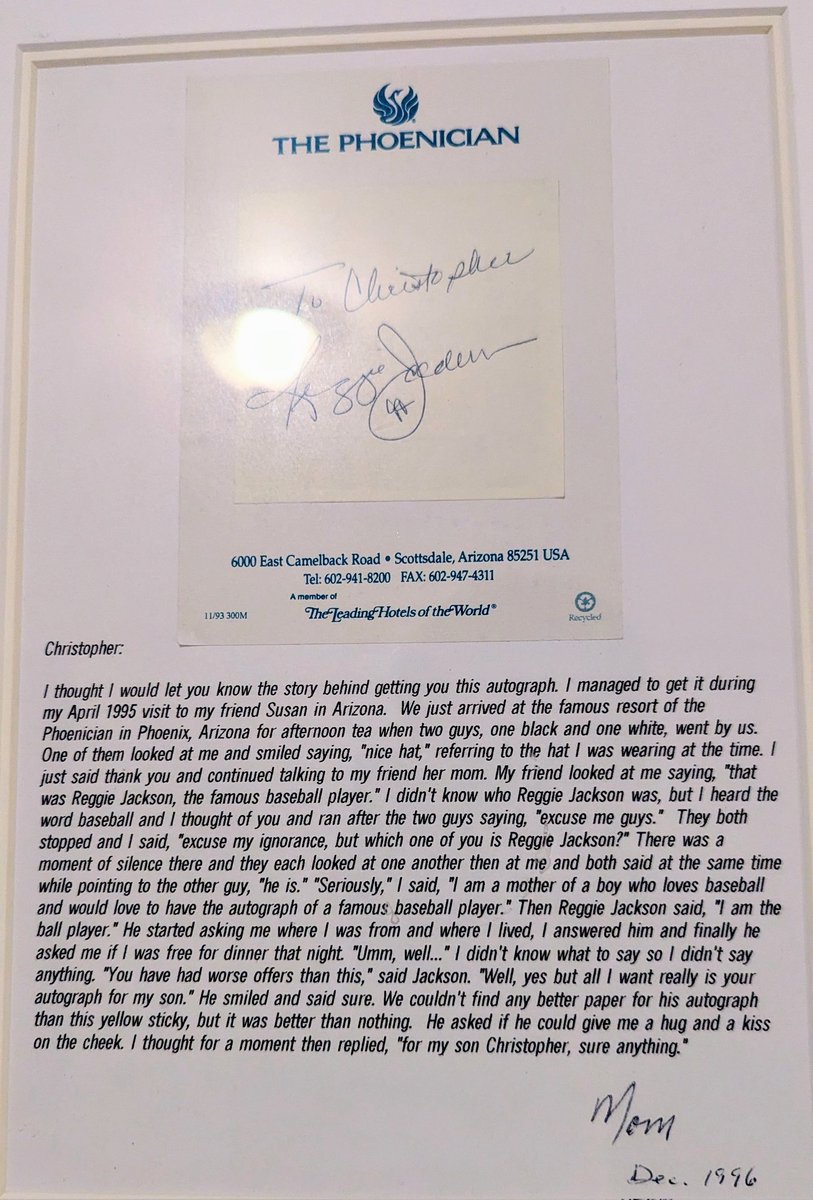 THE PHOENICIAN
To Christopher
Reggie Jackson
6000 East Camelback Road • Scottsdale, Arizona 85251 USA
Tel: 602-941-8200 FAX: 602-947-4311
A member of
The Leading Hotels of the World®
11/93 300M
Recycled
Christopher:
I thought I would let you know the story behind getting you this autograph. I managed to get it during
my April 1995 visit to my friend Susan in Arizona. We just arrived at the famous resort of the
Phoenician in Phoenix, Arizona for afternoon tea when two guys, one black and one white, went by us.
One of them looked at me and smiled saying, "nice hat," referring to the hat I was wearing at the time. I
just said thank you and continued talking to my friend her mom. My friend looked at me saying, "that
was Reggie Jackson, the famous baseball player." I didn't know who Reggie Jackson was, but I heard the
word baseball and I thought of you and ran after the two guys saying, "excuse me guys." They both
stopped and I said, "excuse my ignorance, but which one of you is Reggie Jackson?" There was a
moment of silence there and they each looked at one another then at me and both said at the same time
while pointing to the other guy, "he is." "Seriously," I said, "I am a mother of a boy who loves baseball
and would love to have the autograph of a famous baseball player." Then Reggie Jackson said, "I am the
ball player." He started asking me where I was from and where I lived, I answered him and finally he
asked me if I was free for dinner that night. "Umm, well..." I didn't know what to say so I didn't say
anything. "You have had worse offers than this," said Jackson. "Well, yes but all I want really is your
autograph for my son." He smiled and said sure. We couldn't find any better paper for his autograph
than this yellow sticky, but it was better than nothing. He asked if he could give me a hug and a kiss
on the cheek. I thought for a moment then replied, "for my son Christopher, sure anything."
Mom
Dec. 1996